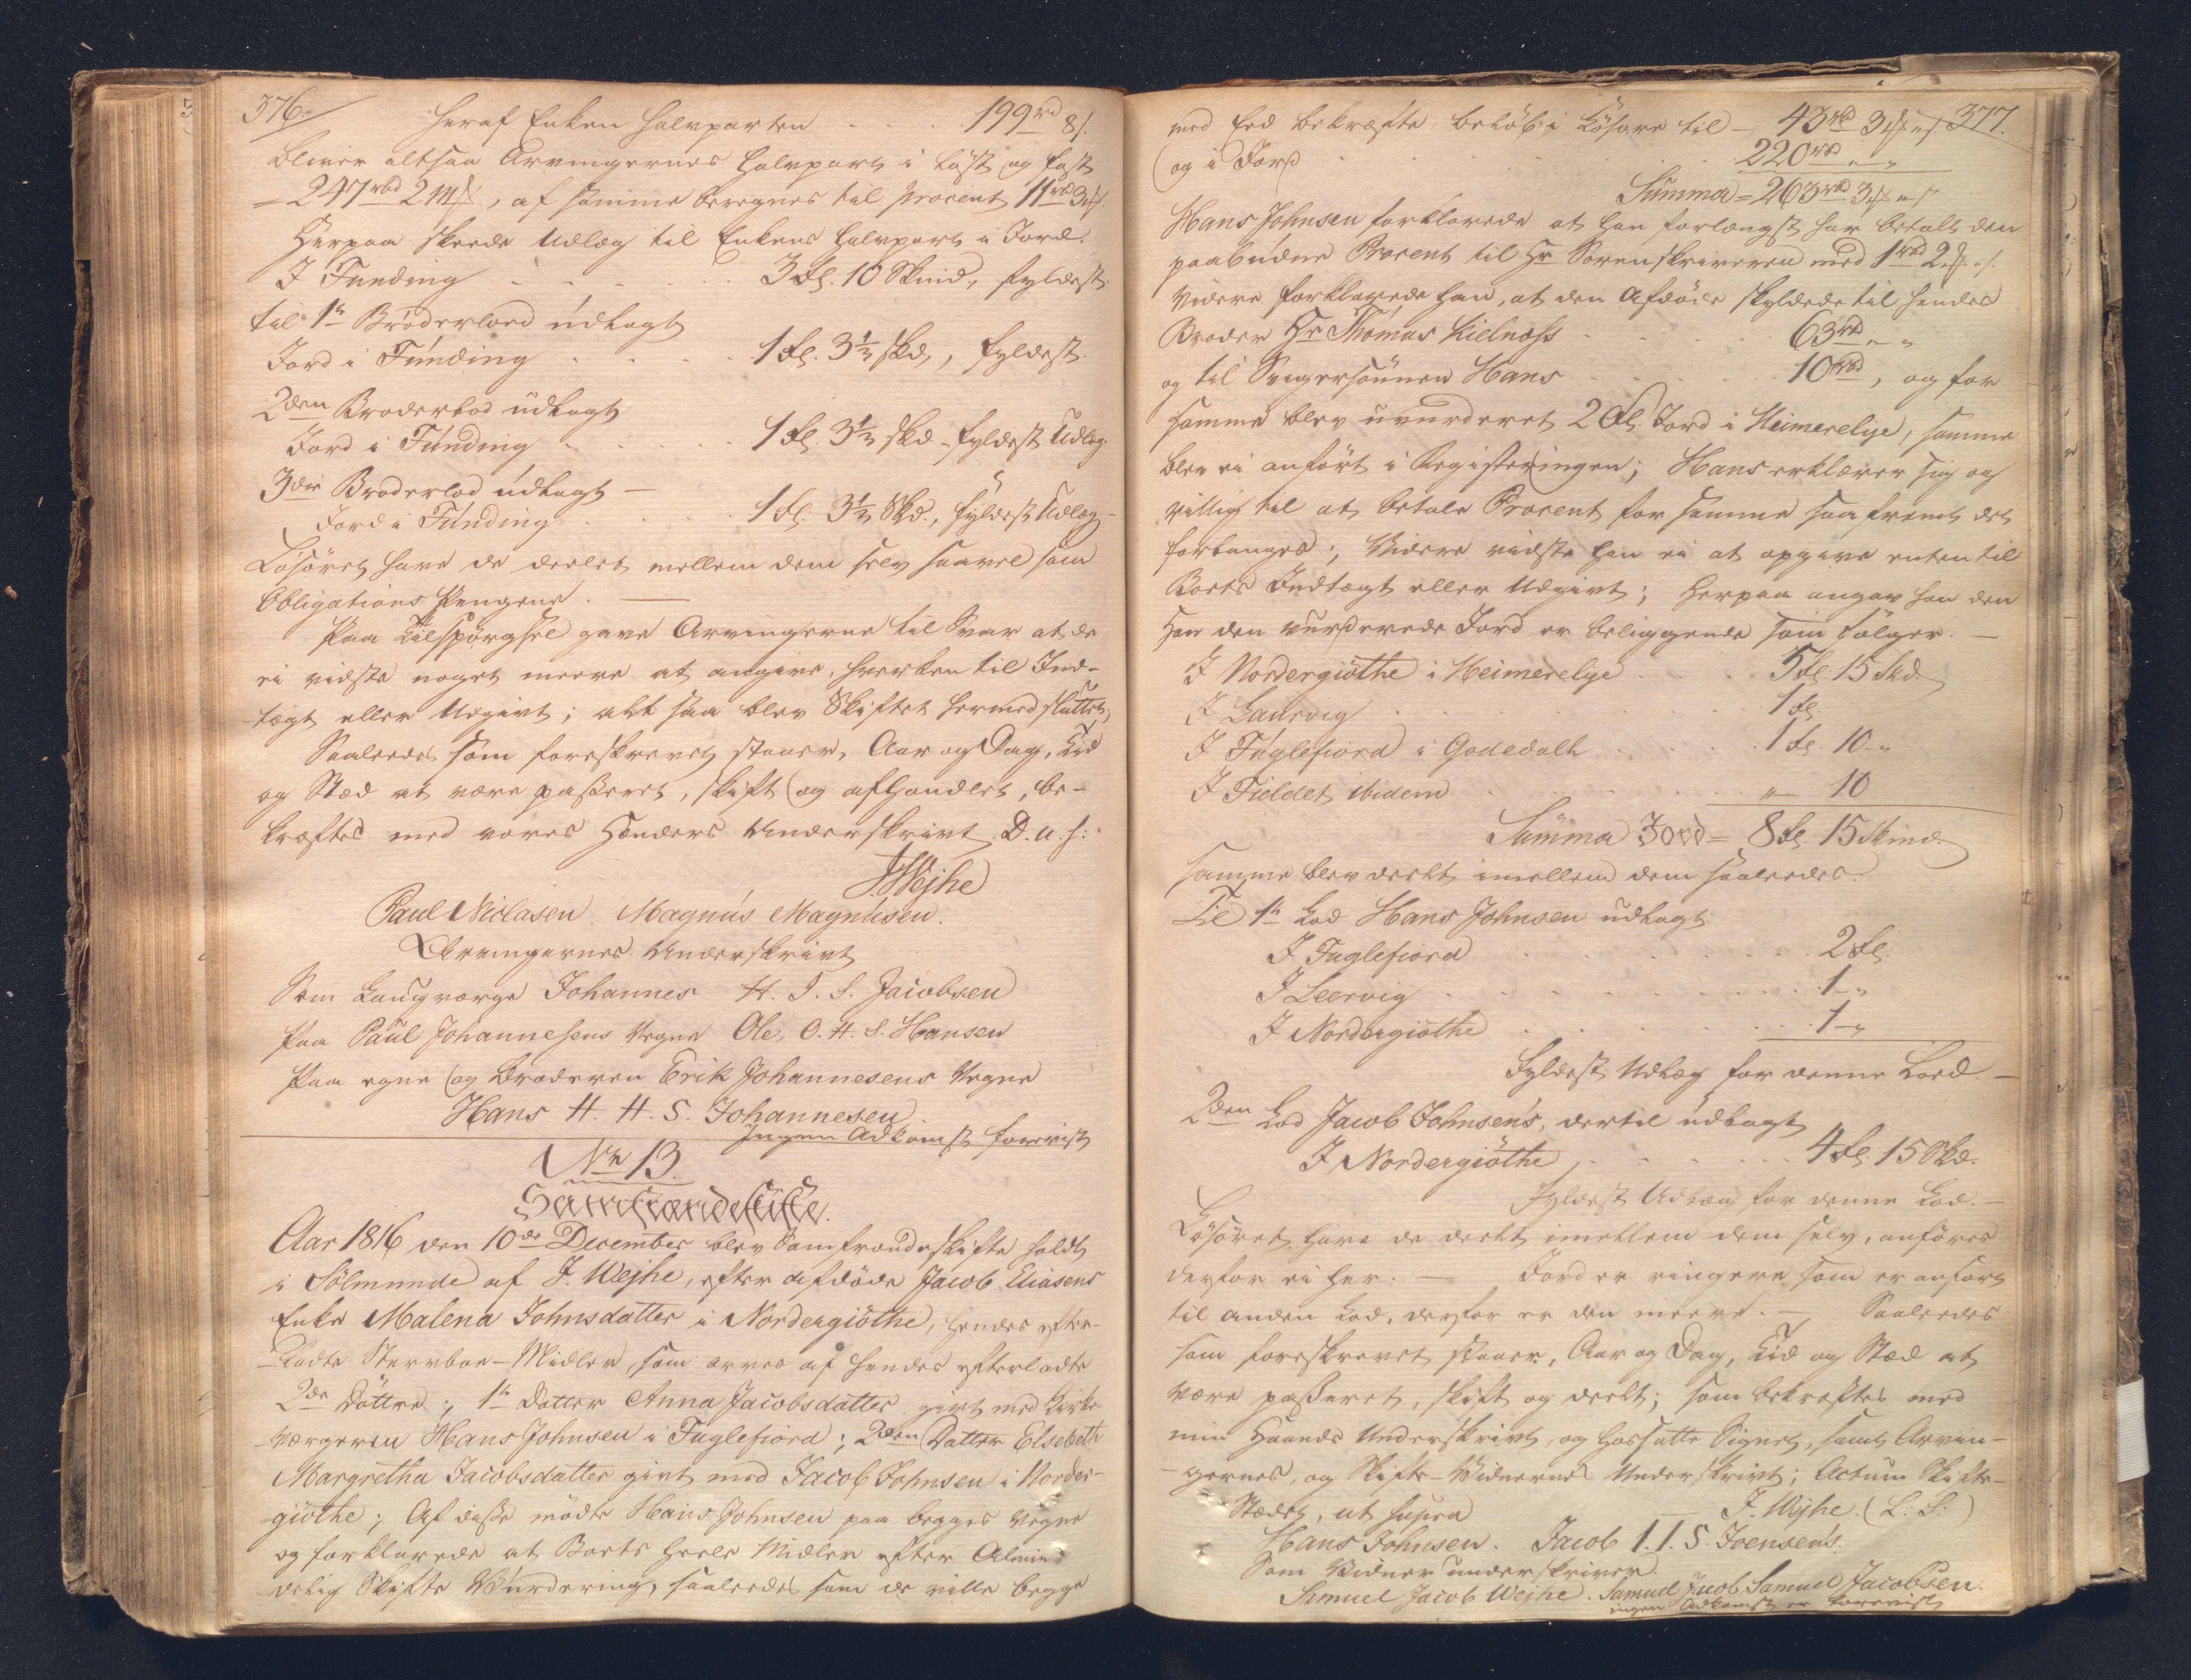 376.
heraf Enken halvparten - - - 199rd 8s.
bliver altsaa Arvingernes halvpart i Løst og fast
= 247rbd 2m , af samme beregnes til procent 11rbd 3m
Herpaa skeede Udlæg til Enkens halvpart i Jord.
I Funding - - - 3 Gl. 10 Skind, fyldest
til 1te Broderlod udlagt
Jord i Funding - - - 1 Gl. 3 1/3 skd, fyldest.
2den Broderlod udlagt
Jord i Funding - - - 1 Gl. 3 1/3 skd - fyldest Udlæg
3die Broderlod udlagt -
Jord i Funding - - - 1 Gl. 3 1/3 Skd., fyldest Udlæg -
Løsøret have de deelet mellem dem selv saavel som
Obligations Pengene. —
Paa Tilspørgsel gave Arvingerne til Svar at de
ei vidste noget meere at angive, hverken til Ind-
tægt eller Udgivt; alt saa blev Skiftet hermed sluttet,
Saaledes som foreskrevet staaer, Aar og Dag, Tid
og Stæd at være passeret, skift og afhandlet, be-
kræftes med vores Hænders Underskrivt D. u. s:
J. Wejhe
Paul Niclasen. Magnus Magnusen.
Arvingernes Underskrivt
Som Laugværge Johannes H. I. S. Jacobsen
Paa Paul Johannesens Vegne Ole, O. H. S. Hansen
Paa egne og Broderen Erik Johannesens Vegne
Hans H. H. S. Johannesen
Ingen Adkomst forevist
No 13.
Samfrændeskifte.
Aar 1816 den 10de December blev Samfrændeskifte holdt
i Sölmunde af J. Wejhe, efter afdøde Jacob Eliasens
Enke Malena Johnsdatter i Nordergiöthe, hendes efter-
ladte Stervboe-Midler som arves af hendes efterladte
2de Döttre; 1te Datter Anna Jacobsdatter givt med Kirke-
værgeren Hans Johnsen i Fuglefiord; 2den Datter Elsebeth
Margretha Jacobsdatter givt med Jacob Johnsen i Norder-
giöthe; Af disse mødte Hans Johnsen paa begges Vegne
og forklarede at Boets heele Midler efter Almin-
delig Skifte Vurdering, saaledes som de ville begge
377.
med Eed bekræfte, beløb i Løsøre til - 43rbd 3m „s
og i Jord - - - 220rbd „ „
Summa = 263rbd 3m „s
Hans Johnsen forklarede at han forlængst har betalt den
paabudne Procent til Hr Sorenskriveren med 1rbd 2m „s.
Videre forklarede han, at den Afdøde skyldede til hendes
Broder Hr Thomas Kielnæss - - - 63rbd „ „
og til Svigersønnen Hans - - - 10rbd, og for
samme blev uvurderet 2 Gl. Jord i Heimerelye, samme
blev ei anført i Registeringen; Hans erklærer sig og
villig til at betale Procent for samme saafremt det
forlanges; Videre vidste han ei at opgive enten til
Boets Indtægt eller Udgivt; herpaa angav han den
Hvor den vurderede Jord er beliggende som følger. —
I Nordergiöthe i Heimerelye - - - 5 Gl. 15 Skd
I Laurvig - - - 1 Gl.
I Fuglefiord i Godedalk - - - 1 Gl. 10 „
I Fieldet ibidem - - - „ 10
Summa Jord = 8 Gl. 15 Skind.
samme blev deelt imellem dem saaledes.
Til 1te Lod Hans Johnsen udlagt
I Fuglefiord - - - 2 Gl.
I Leervig - - - 1 - „
I Nordergiöthe - - - 1 - „
Fyldest Udlæg for denne Lod. —
2den Lod Jacob Johnsen's, dertil udlagt
I Nordergiöthe - - - 4 Gl. 15 Skd.
Fyldest Udlæg for denne Lod. —
Løsøret have de deelt imellem dem selv, anføres
derfor ei her. — Jord er ringere som er anført
til anden Lod, derfor er den meere. — Saaledes
som foreskrevet staaer, Aar og Dag, Tid og Stæd at
være passeret, skift og deelt; som bekræftes med
min Haands Underskrivt, og hossatte Signet, samt Arvin-
gernes, og Skifte-Vidnernes Underskrivt; Actum Skifte-
Stædet, ut supra J. Wejhe. (L: S:)
Hans Johnsen. Jacob I. I. S. Joensen's.
Som Vidner underskriver.
Samuel Jacob Wejhe. Samuel Jacob Samuel Jacobsen.
ingen Adkomst er forevist